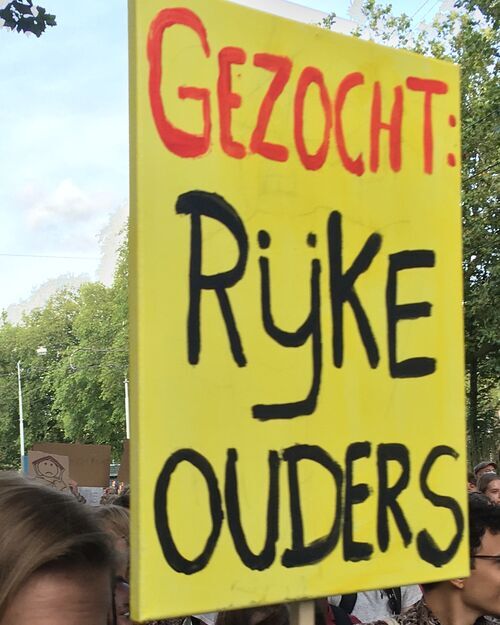 GEZOCHT:
RIJKE
OUDERS